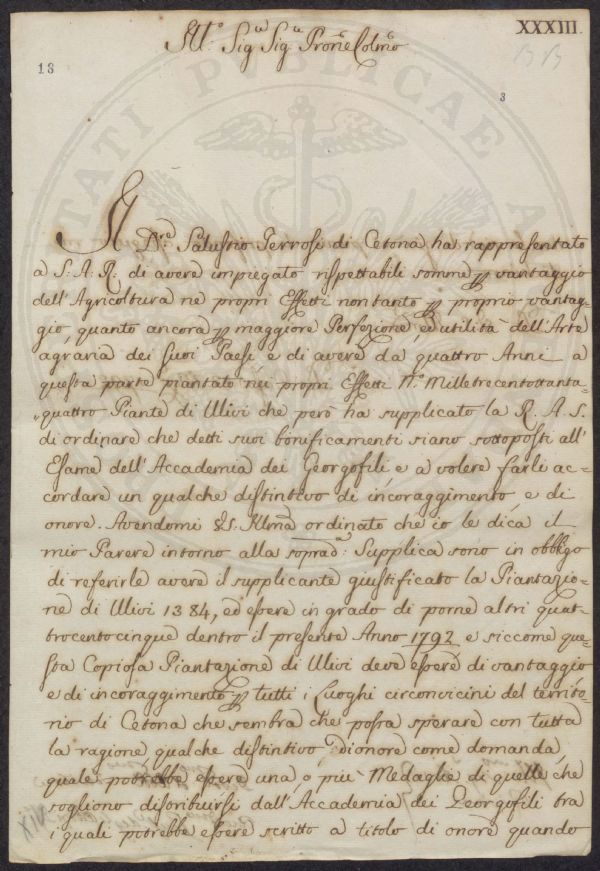 XXXIII.
Ill.º Sig.re Sig.re Pron̄e Colmo
13
3
Il D.re Salustio Terrosi di Cetona ha rappresentato
a S: A: R: di avere impiegato rispettabili somme p vantaggio
dell'Agricoltura ne propri Effetti non tanto p proprio vantag-
gio, quanto ancora p maggiore Perfezione, ed utilità dell'Arte
agraria dei suoi Paesi e di avere da quattro Anni a
questa parte piantato nei propri Effetti N.º Milletrecentottanta-
quattro Piante di Ulivi che però ha supplicato la R. A. S.
di ordinare che detti suoi bonificamenti siano sottoposti all'
Esame dell'Accademia dei Georgofili e a volere farli ac-
cordare un qualche distintivo di incoraggimento, e di
onore. Avendomi VS. Illma ordinato che io le dica il
mio Parere intorno alla soprad.ª Supplica sono in obbligo
di referirle avere il supplicante giustificato la Piantazio-
ne di Ulivi 1384, ed essere in grado di porne altri quat-
trocentocinque dentro il presente Anno 1792 e siccome que-
sta Copiosa Piantazione di Ulivi deve essere di vantaggio
e di incoraggimento p tutti i Luoghi circonvicini del territo-
rio di Cetona che sembra che possa sperare con tutta
la ragione qualche distintivo d'onore come domanda,
quale potrebbe essere una, o più Medaglie di quelle che
sogliono distribuirsi dall'Accademia dei Georgofili tra
i quali potrebbe essere scritto a titolo di onore quando